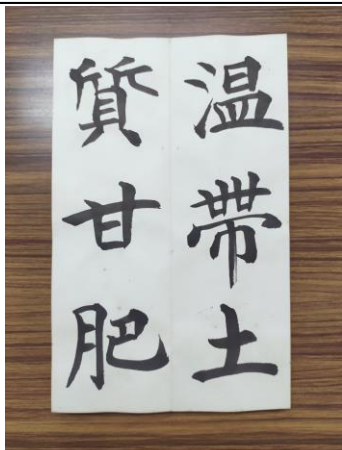 温帯土
質甘肥